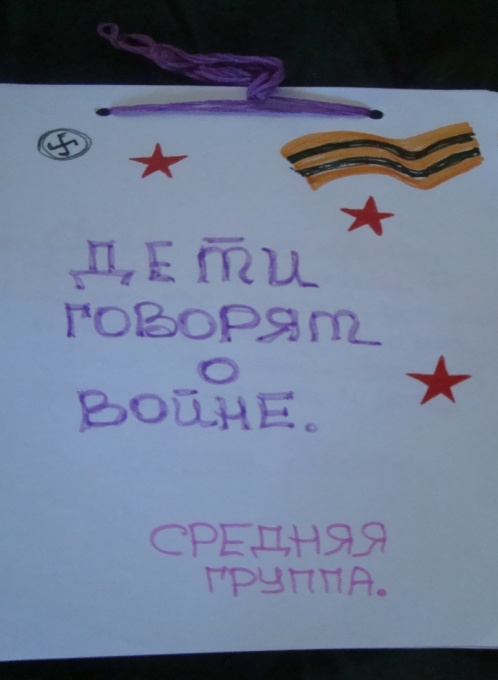 ДЕТИ
ГОВОРЯТ
О
ВОЙНЕ.
СРЕДНЯЯ
ГРУППА.